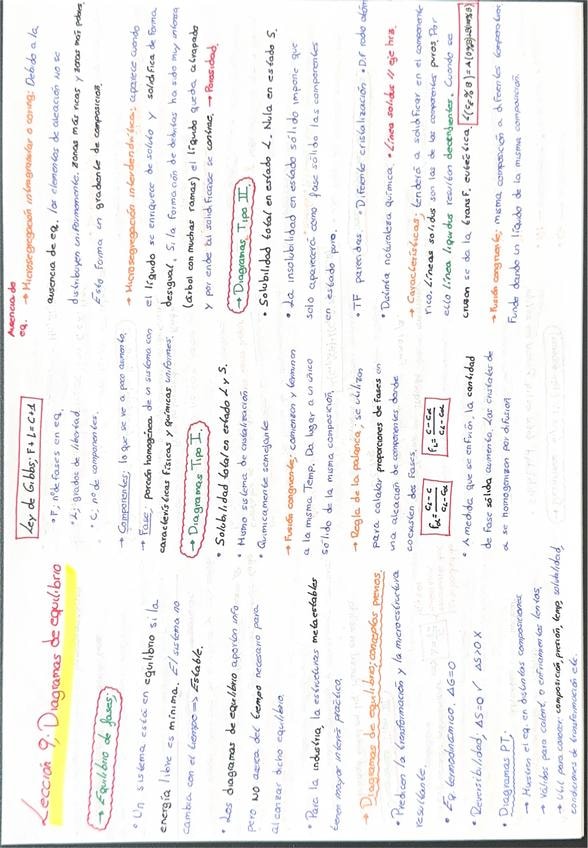 Lección 9: Diagramas de equilibrio
→ Equilibrio de fases;
• Un sistema está en equilibrio si la
energía libre es mínima. El sistema no
cambia con el tiempo → Estable.
• Los diagramas de equilibrio aportan info
pero NO acerca del tiempo necesario para
alcanzar dicho equilibrio.
• Para la industria, la estructuras metaestables
tienen mayor interés práctico.
→ Diagramas de equilibrio; conceptos previos.
• Predicen la transformación y la microestructura
resultante.
• Eq. termodinámico, ΔG=0
• Reversibilidad, ΔS=0 ✓ ΔS>0 X
• Diagramas PT;
→ Muestran el eq. en distintas composiciones
→ Válidos para calent. o enfriamientos lentos,
→ Útil para conocer: composición, presión, temp, solubilidad,
condiciones de transformación etc.
Ley de Gibbs; F+L=C+1
• F; nº de fases en eq.
• L; grados de libertad.
• C; nº de componentes.
→ Componentes; lo que se ve a poco aumento,
→ Fase; porción homogénea de un sistema con
características físicas y químicas uniformes.
→ Diagramas Tipo I.
• Solubilidad total en estado L y S.
• Mismo sistema de cristalización
• Químicamente semejante
→ Fusión congruente; comienzan y terminan
a la misma Temp. Da lugar a un único
sólido de la misma composición.
→ Regla de la palanca; se utilizan
para calcular proporciones de fases en
una aleación de componentes donde
coexisten dos fases,
fα = CL - C / CL - Cα
fL = C - Cα / CL - Cα
• A medida que se enfría, la cantidad
de fase sólida aumenta. Los cristales de
α se homogenizan por difusión
Ausencia de
eq. → Microsegregación intragranular o coring: Debido a la
ausencia de eq. los elementos de aleación no se
distribuyen uniformemente. zonas más ricas y zonas más pobres.
Esto forma un gradiente de composición.
→ Microsegregación interdendrítica; aparece cuando
el líquido se enriquece de soluto y solidifica de forma
desigual. Si la formación de dendritas ha sido muy intensa
(árbol con muchas ramas) el líquido queda atrapado
y por ende tal solidificarse se contrae → Porosidad.
→ Diagramas Tipo II.
• Solubilidad total en estado L. Nula en estado S.
• La insolubilidad en estado sólido impone que
solo aparecerá como fase sólida los componentes
en estado puro.
• TF parecidas • Diferente cristalización • Dif radio atóm
• Distinta naturaleza química • Línea solidus // eje hrz.
→ Características; tenderá a solidificar en el componente
rico. Líneas solidus son las de los componentes puros. Por
ello línea liquidus resultan decrecientes. Cuando se
cruzan se da la transf. eutéctica,
→ Fusión congruente; misma composición a diferentes temperaturas.
Funde dando un líquido de la misma composición.